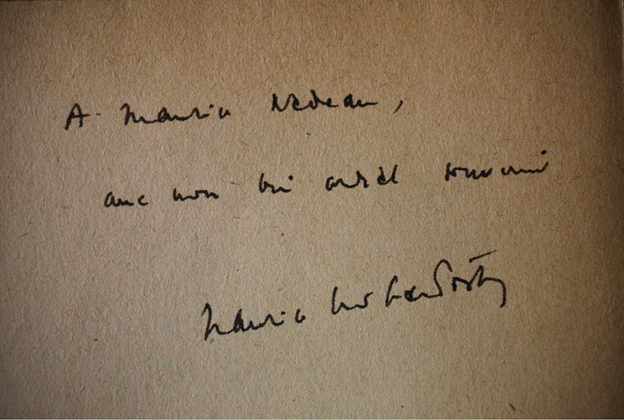 A Maurice Nadeau,
avec mon bien cordial souvenir
Maurice Merleau-Ponty